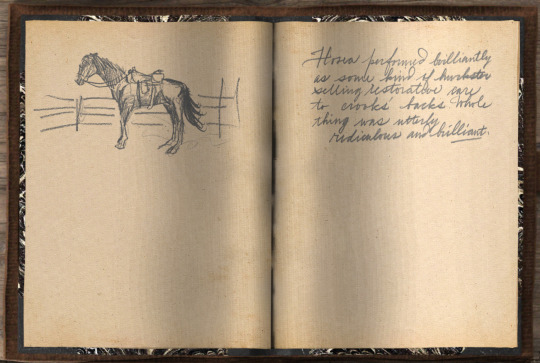 Hosea performed brilliantly
as some kind of huckster
selling restorative care
to crooks' backs whole
thing was utterly
ridiculous and brilliant.